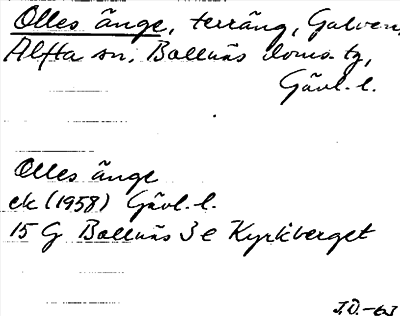 Olles änge, terräng, Galven,
Alfta sn, Bollnäs doms. tg,
Gävl. l.
Olles änge
ek (1958) Gävl. l.
15 G Bollnäs 3 e Kyrkberget
J.D. -63